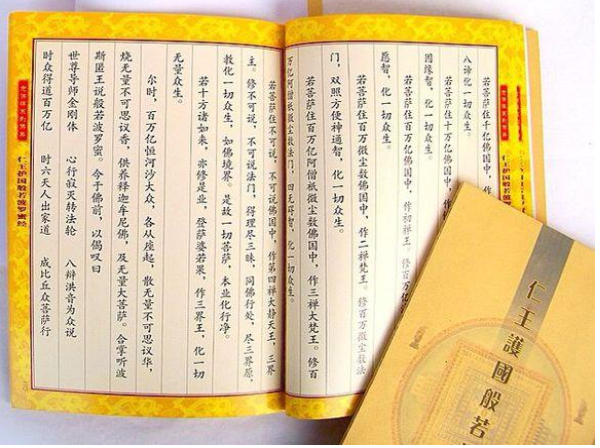 仁王护国般若波罗蜜经
若菩萨住千亿佛国中，
八谛化一切众生。
因缘智，化一切众生。
若菩萨住百万亿佛国中，作初禅王。修百万亿
愿智，化一切众生。
若菩萨住百万微尘数佛国中，作二禅梵王。修百万微尘数法
门，双照方便神通智，化一切众生。
若菩萨住百万亿阿僧祇微尘数佛国中，作三禅大梵王。修百
万亿阿僧祇微尘数法门，四无碍智，化一切众生。
若菩萨住不可说不可说佛国中，作第四禅大静天王，三界
主，修不可说、不可说法门，得理尽三昧，同佛行处，尽三界原，
教化一切众生，如佛境界。是故一切菩萨，本业化行净。
若十方诸如来，亦修是业，登萨婆若果，作三界王，化一切
无量众生。
尔时，百万亿恒河沙大众，各从座起，散无量不可思议华，
烧无量不可思议香，供养释迦牟尼佛，及无量大菩萨。合掌听波
斯匿王说般若波罗蜜。今于佛前，以偈叹曰
世尊导师金刚体 心行寂灭转法轮 八辩洪音为众说
时众得道百万亿 时六天人出家道 成比丘众菩萨行
仁王护国般若波罗蜜经
仁王護國般若